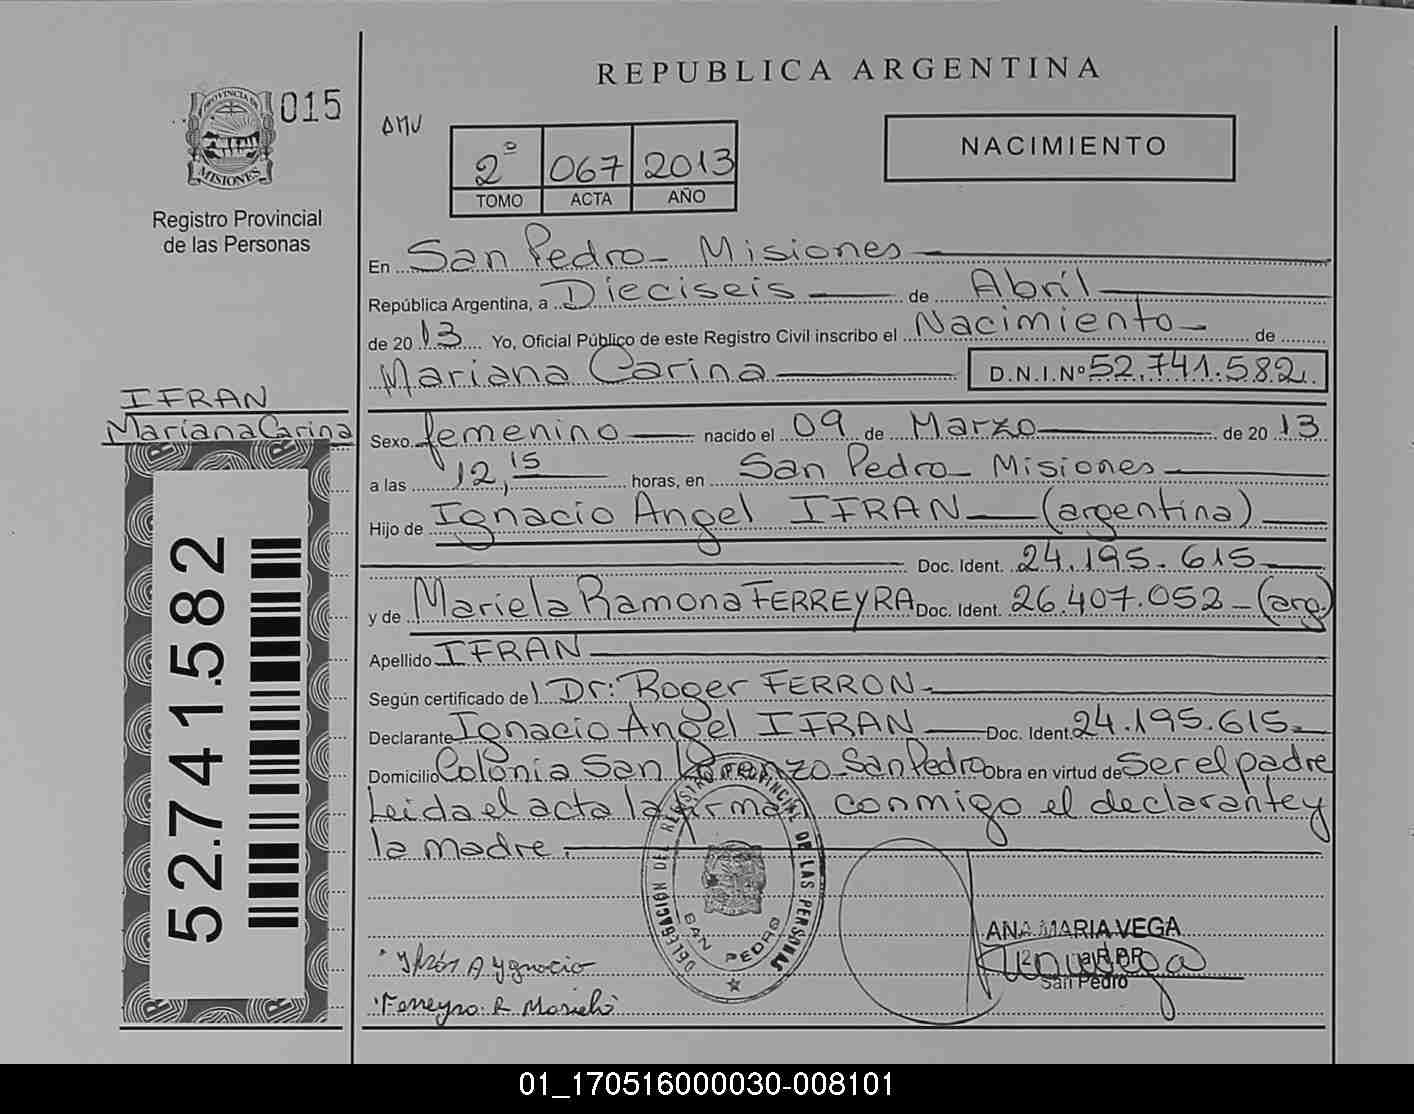 REPUBLICA ARGENTINA
PROVINCIA DE
MISIONES
015
Registro Provincial
de las Personas
DMV
2º 067 2013
TOMO ACTA AÑO
NACIMIENTO
En San Pedro - Misiones
República Argentina, a Dieciseis de Abril
de 2013 Yo, Oficial Público de este Registro Civil inscribo el Nacimiento - de
Mariana Carina D.N.I.Nº 52.741.582.
IFRAN
Mariana Carina
52.741.582
Sexo femenino nacido el 09 de Marzo de 2013
a las 12,15 horas, en San Pedro - Misiones
Hijo de Ignacio Angel IFRAN (argentina)
Doc. Ident. 24.195.615
y de Mariela Ramona FERREYRA Doc. Ident. 26.407.052 - (arg.)
Apellido IFRAN
Según certificado del Dr: Roger FERRON
Declarante Ignacio Angel IFRAN Doc. Ident. 24.195.615
Domicilio Colonia San Lorenzo - San Pedro Obra en virtud de Ser el padre
Leida el acta la firma conmigo el declarante y
la madre.
DELEGACIÓN DEL REGISTRO PROVINCIAL DE LAS PERSONAS
SAN PEDRO
ANA MARIA VEGA
San Pedro
Ferreyra R Mariela
01_170516000030-008101